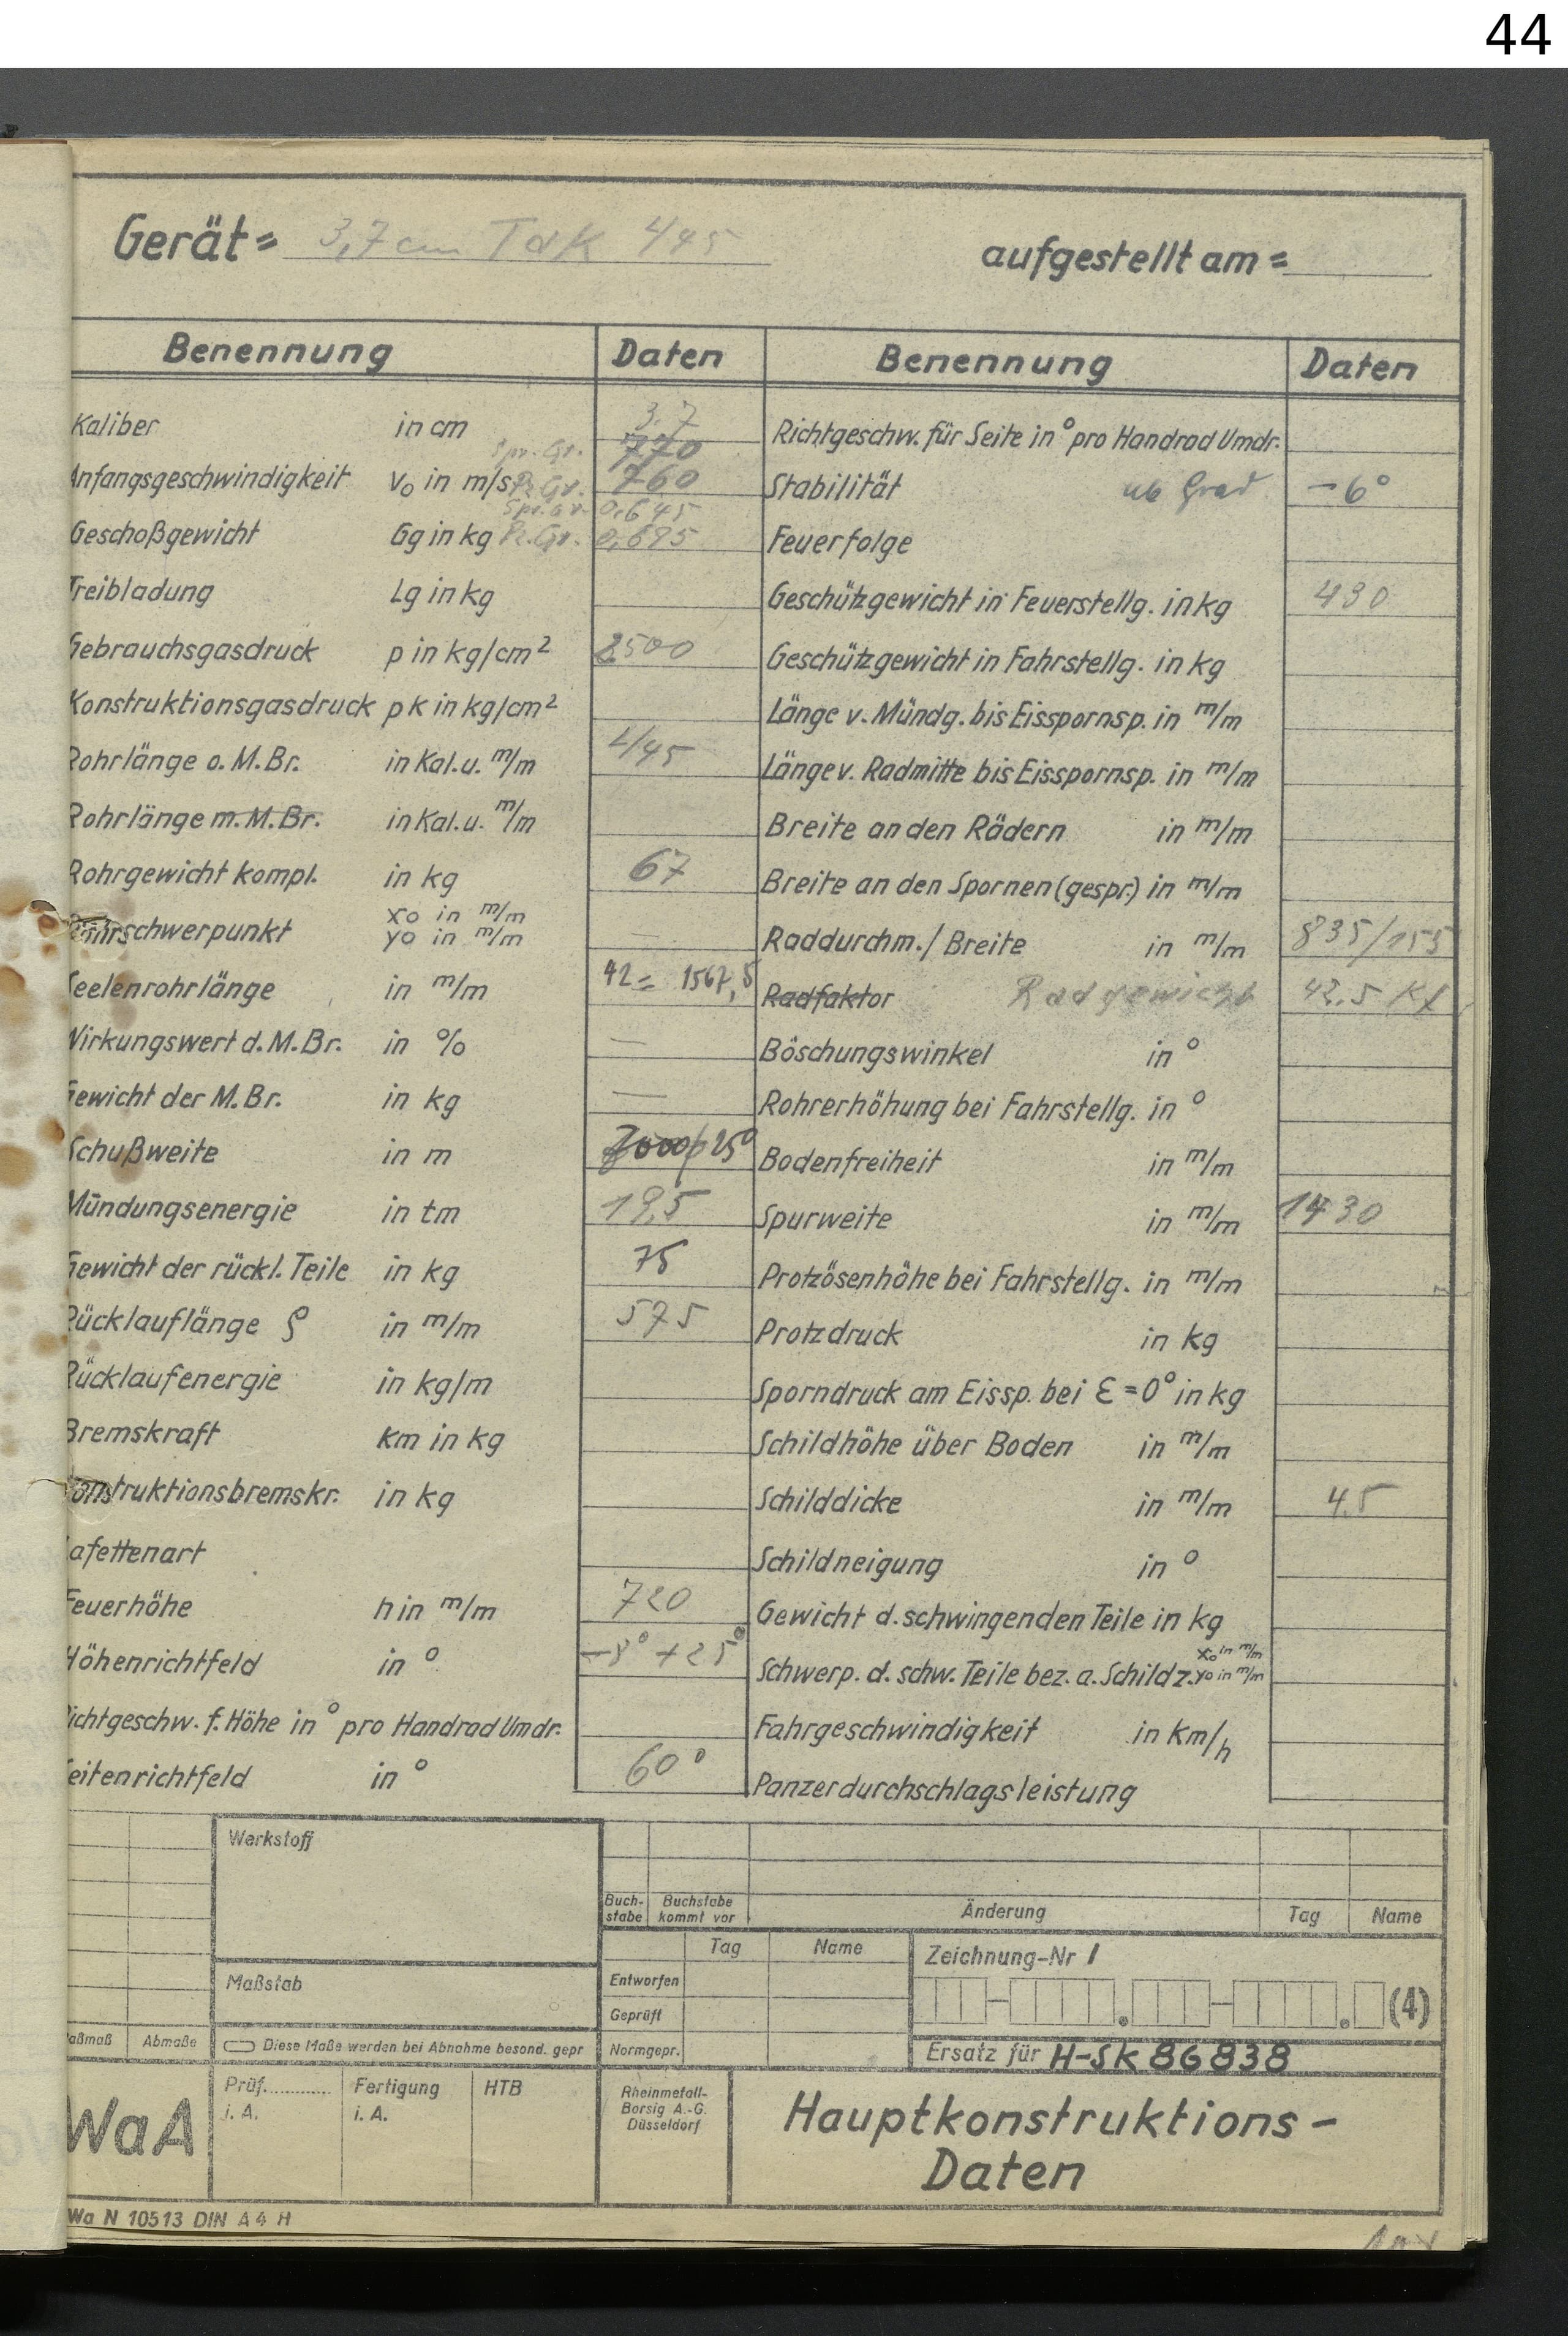 44
Gerät = 3,7 cm Tak L/45
aufgestellt am =
Benennung Daten Benennung Daten
Kaliber in cm 3,7
Spr. Gr. 770
Anfangsgeschwindigkeit vo in m/s Pz.Gr. 760
Spr. Gr. 0,645
Geschoßgewicht Gg in kg Pz.Gr. 0,695
Treibladung Lg in kg
Gebrauchsgasdruck p in kg/cm² 2500
Konstruktionsgasdruck pk in kg/cm²
Rohrlänge o. M.Br. in Kal. u. m/m L/45
Rohrlänge m. M.Br. in Kal. u. m/m
Rohrgewicht kompl. in kg 67
Rohrschwerpunkt xo in m/m
yo in m/m —
Seelenrohrlänge in m/m 42 = 1567,5
Wirkungswert d. M.Br. in % —
Gewicht der M.Br. in kg —
Schußweite in m 7000/25°
Mündungsenergie in tm 19,5
Gewicht der rückl. Teile in kg 75
Rücklauflänge ϱ in m/m 575
Rücklaufenergie in kg/m
Bremskraft Km in kg
Konstruktionsbremskr. in kg
Lafettenart
Feuerhöhe h in m/m 720
Höhenrichtfeld in ° -8° +25°
Richtgeschw. f. Höhe in ° pro Handrad Umdr.
Seitenrichtfeld in ° 60°
Richtgeschw. für Seite in ° pro Handrad Umdr.
Stabilität ab Grad -6°
Feuerfolge
Geschützgewicht in Feuerstellg. in kg 430
Geschützgewicht in Fahrstellg. in kg
Länge v. Mündg. bis Eisspornsp. in m/m
Länge v. Radmitte bis Eisspornsp. in m/m
Breite an den Rädern in m/m
Breite an den Spornen (gespr.) in m/m
Raddurchm./Breite in m/m 835/155
Radfaktor Radgewicht 42,5 Kg
Böschungswinkel in °
Rohrerhöhung bei Fahrstellg. in °
Bodenfreiheit in m/m
Spurweite in m/m 1430
Protzösenhöhe bei Fahrstellg. in m/m
Protzdruck in kg
Sporndruck am Eissp. bei ε = 0° in kg
Schildhöhe über Boden in m/m
Schilddicke in m/m 4,5
Schildneigung in °
Gewicht d. schwingenden Teile in kg
Schwerp. d. schw. Teile bez. a. Schildz. xo in m/m yo in m/m
Fahrgeschwindigkeit in Km/h
Panzerdurchschlagsleistung
Werkstoff
Maßstab
Paßmaß Abmaße
Diese Maße werden bei Abnahme besond. gepr
Buchstabe Buchstabe kommt vor Änderung Tag Name
Tag Name
Entworfen
Geprüft
Normgepr.
Zeichnung-Nr 1
(4)
Ersatz für H-SK 86838
WaA
Prüf............ Fertigung HTB
i. A. i. A.
Rheinmetall-
Borsig A.-G.
Düsseldorf
Hauptkonstruktions-
Daten
Wa N 10513 DIN A 4 H